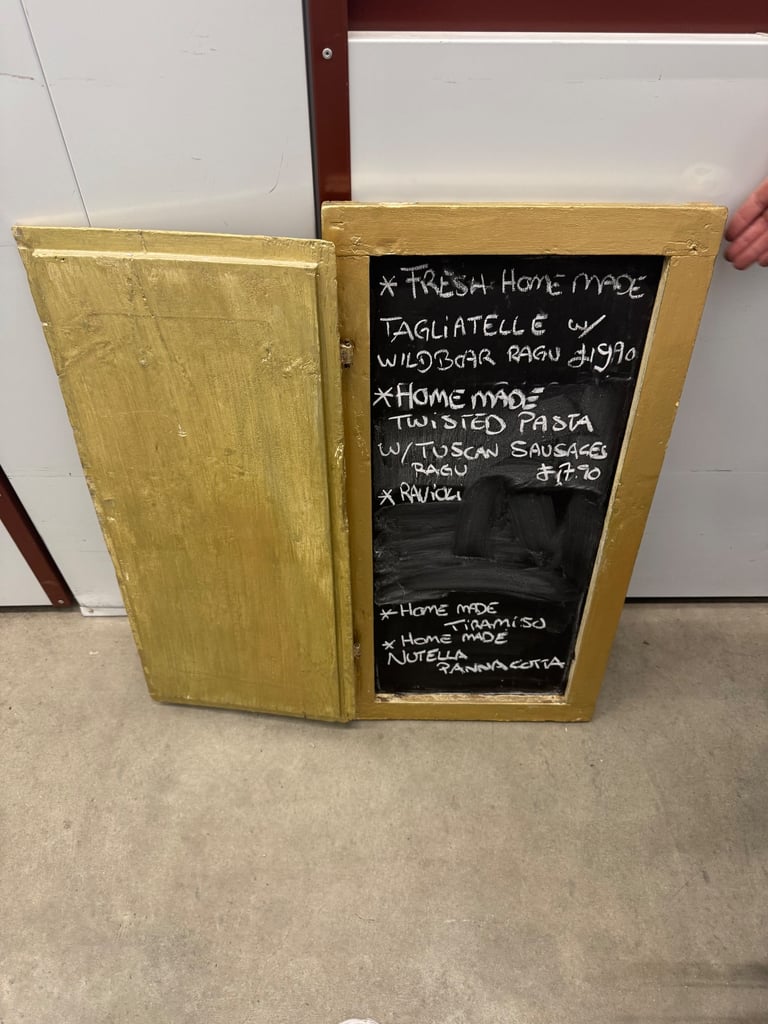 * FRESH HOME MADE
TAGLIATELLE w/
WILDBOAR RAGU £19.90
* HOME MADE
TWISTED PASTA
W/ TUSCAN SAUSAGES
RAGU £17.90
* RAVIOLI
* HOME MADE
TIRAMISU
* HOME MADE
NUTELLA
PANNACOTTA